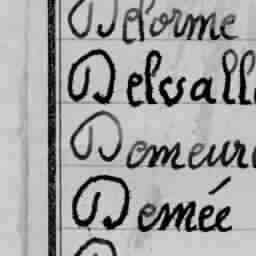 Delorme
Delsall
Domeur
Demée